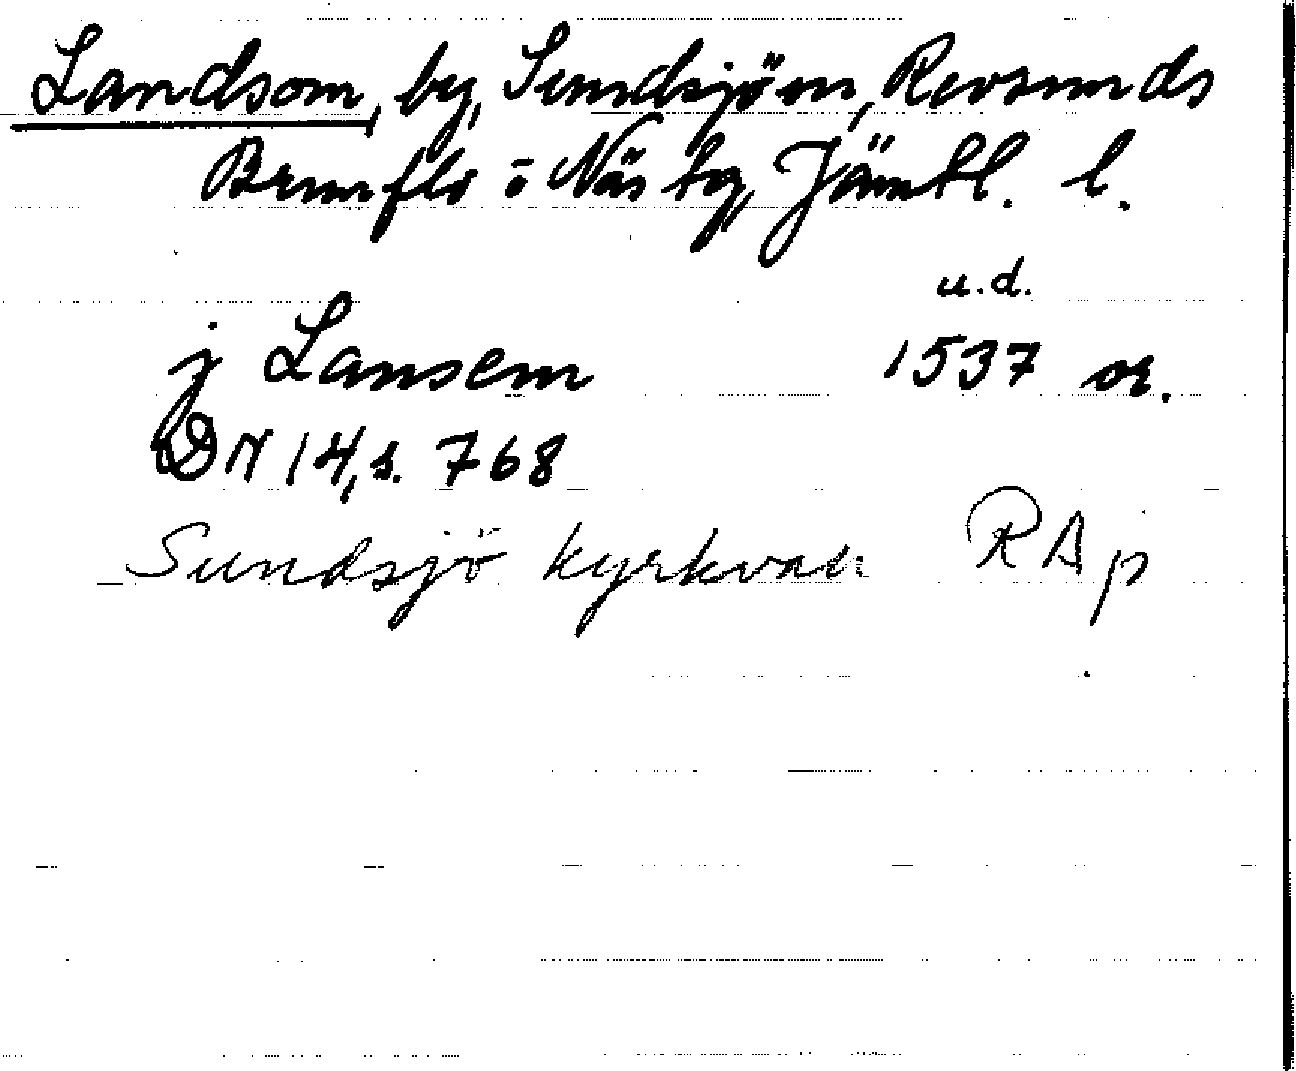 Landsom, by, Sundsjön, Revsunds
Brunflo o Näs tg, Jämtl. l.
u.d.
j Lansem 1537 or.
DN 14, s. 768
Sundsjö kyrkvall RAp